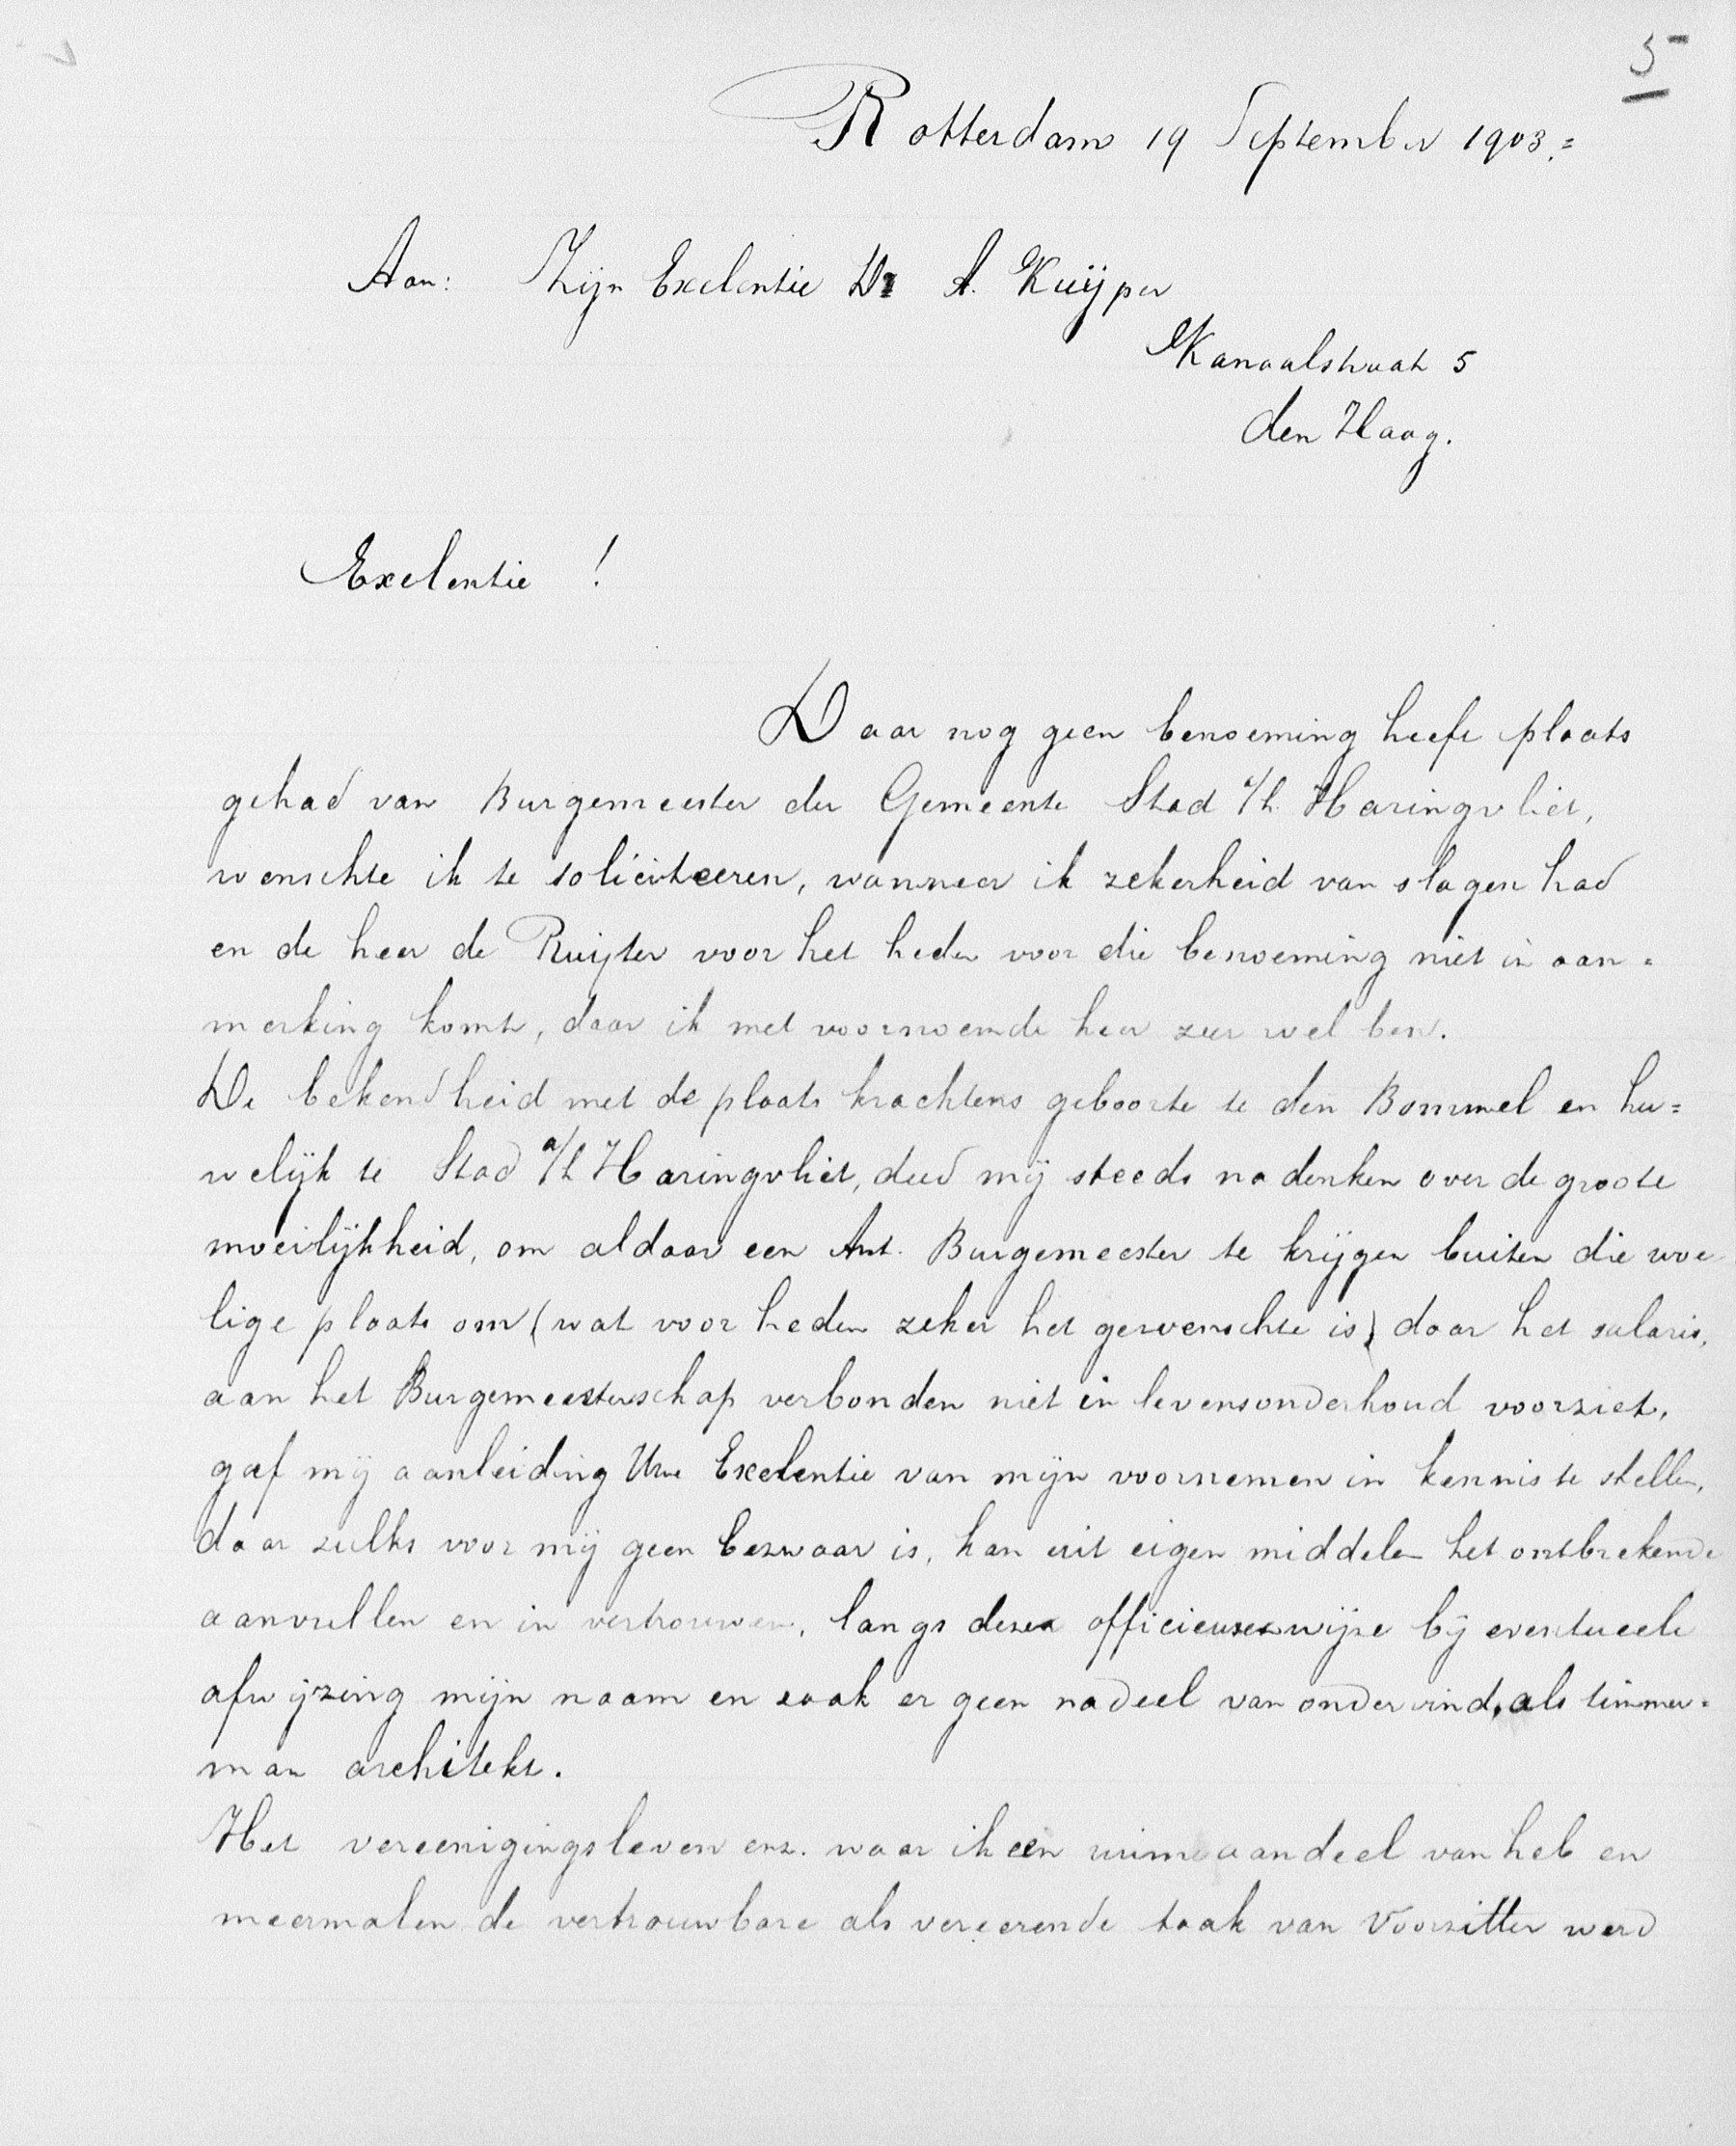 5
Rotterdam 19 September 1903.=
Aan: Zijn Exelentie Dr A. Kuijper
Kanaalstraat 5
den Haag.
Exelentie !
Daar nog geen benoeming heeft plaats
gehad van Burgemeester der Gemeente Stad a/h. Haringvliet,
wenschte ik te soliciteeren, wanneer ik zekerheid van slagen had
en de heer de Ruijter voor het heden voor die benoeming niet in aan=
merking komt, daar ik met voornoemde heer zeer wel ben.
De bekendheid met de plaats krachtens geboorte te den Bommel en hu=
welijk te Stad a/h Haringvliet, deed mij steeds nadenken over de groote
moeilijkheid, om aldaar een Ant. Burgemeester te krijgen buiten die woe
lige plaats om (wat voor heden zeker het gewenschte is) daar het salaris,
aan het Burgemeesterschap verbonden niet in levensonderhoud voorziet,
gaf mij aanleiding Uwe Exelentie van mijn voornemen in kennis te stellen,
daar zulks voor mij geen bezwaar is, kan uit eigen middelen het ontbrekende
aanvullen en in vertrouwen, langs deze officieuse wijze bij eventueele
afwijzing mijn naam en zaak er geen nadeel van ondervind, als timmer=
man architekt.
Het vereenigingsleven enz. waar ik een ruim aandeel van heb en
meermalen de vertrouwbare als vereerende taak van Voorzitter werd